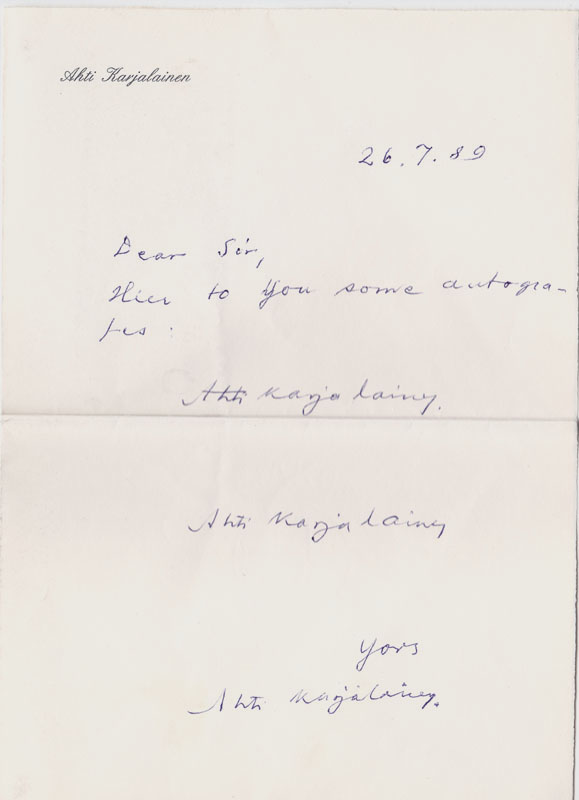 Ahti Karjalainen
26.7.89
Dear Sir,
Hier to You some autogra-
fes:
Ahti Karjalainen
Ahti Karjalainen
Yors
Ahti Karjalainen.